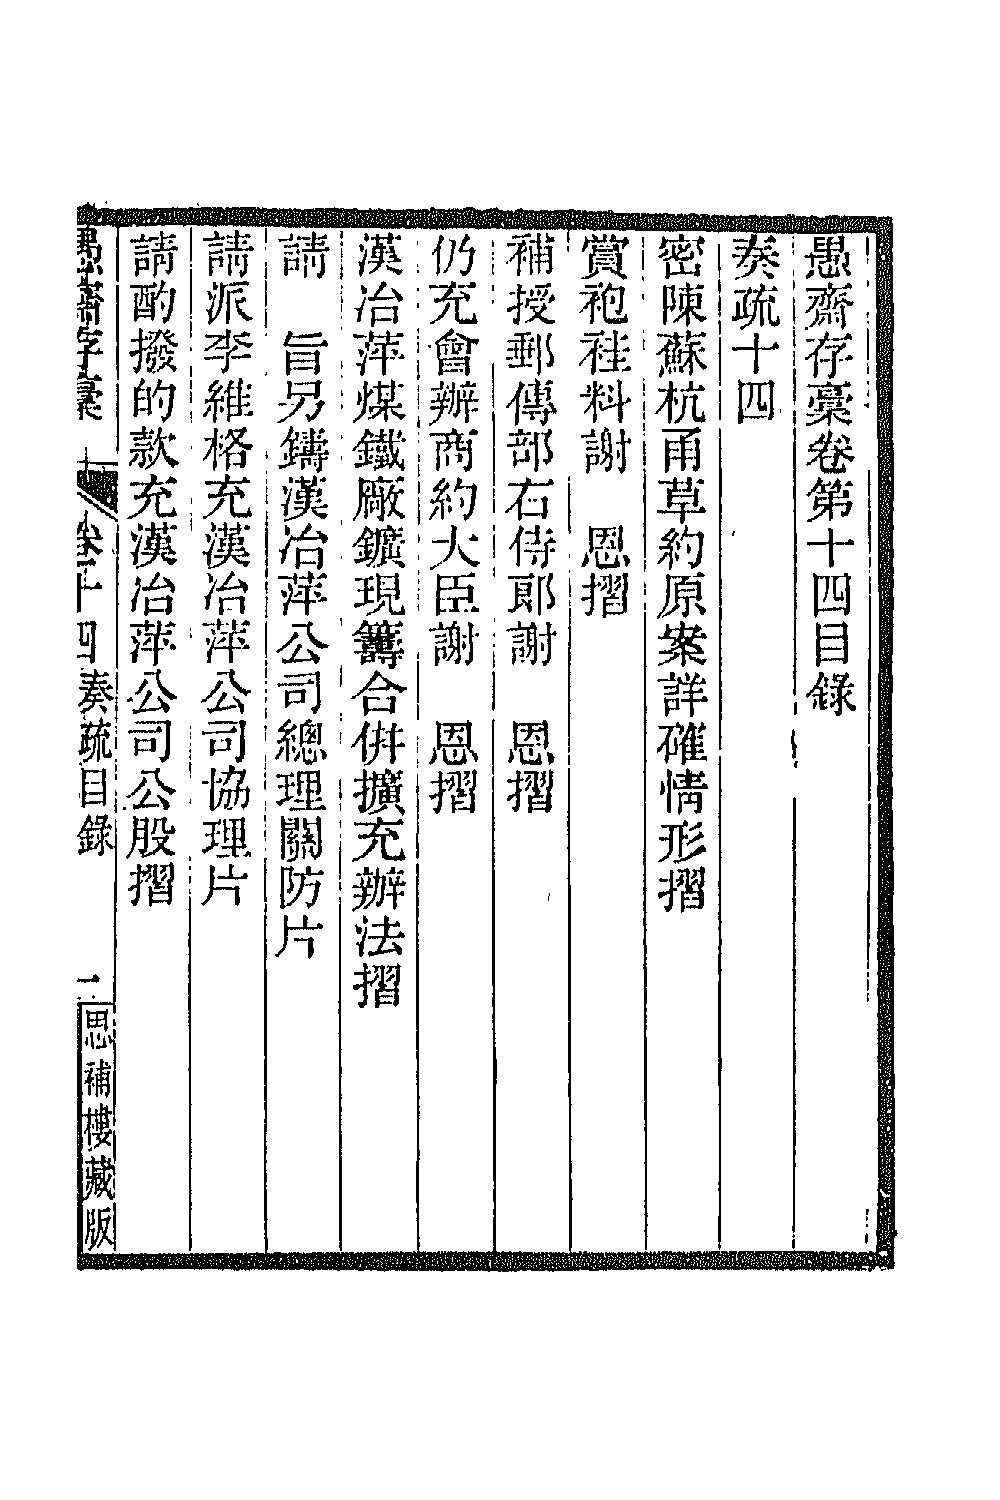 愚齋存稾卷第十四目錄
奏疏十四
密陳蘇杭甬草約原案詳確情形摺
賞袍褂料謝　恩摺
補授郵傳部右侍郎謝　恩摺
仍充會辦商約大臣謝　恩摺
漢冶萍煤鐵廠鑛現籌合併擴充辦法摺
請　旨另鑄漢冶萍公司總理關防片
請派李維格充漢冶萍公司協理片
請酌撥的款充漢冶萍公司公股摺
愚齋存稾　卷十四　奏疏目錄　一　思補樓藏版